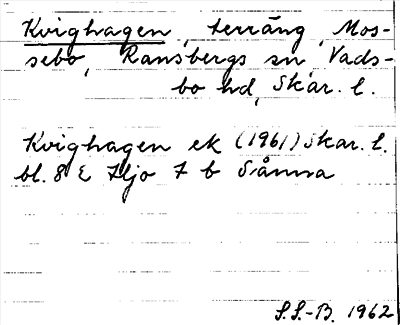 Kvighagen, terräng, Mos-
sebo, Ransbergs sn, Vads-
bo hd, Skar. l.
Kvighagen ek (1961) Skar. l.
bl. 8 E Hjo 7 b Sånna
S.S.-B. 1962